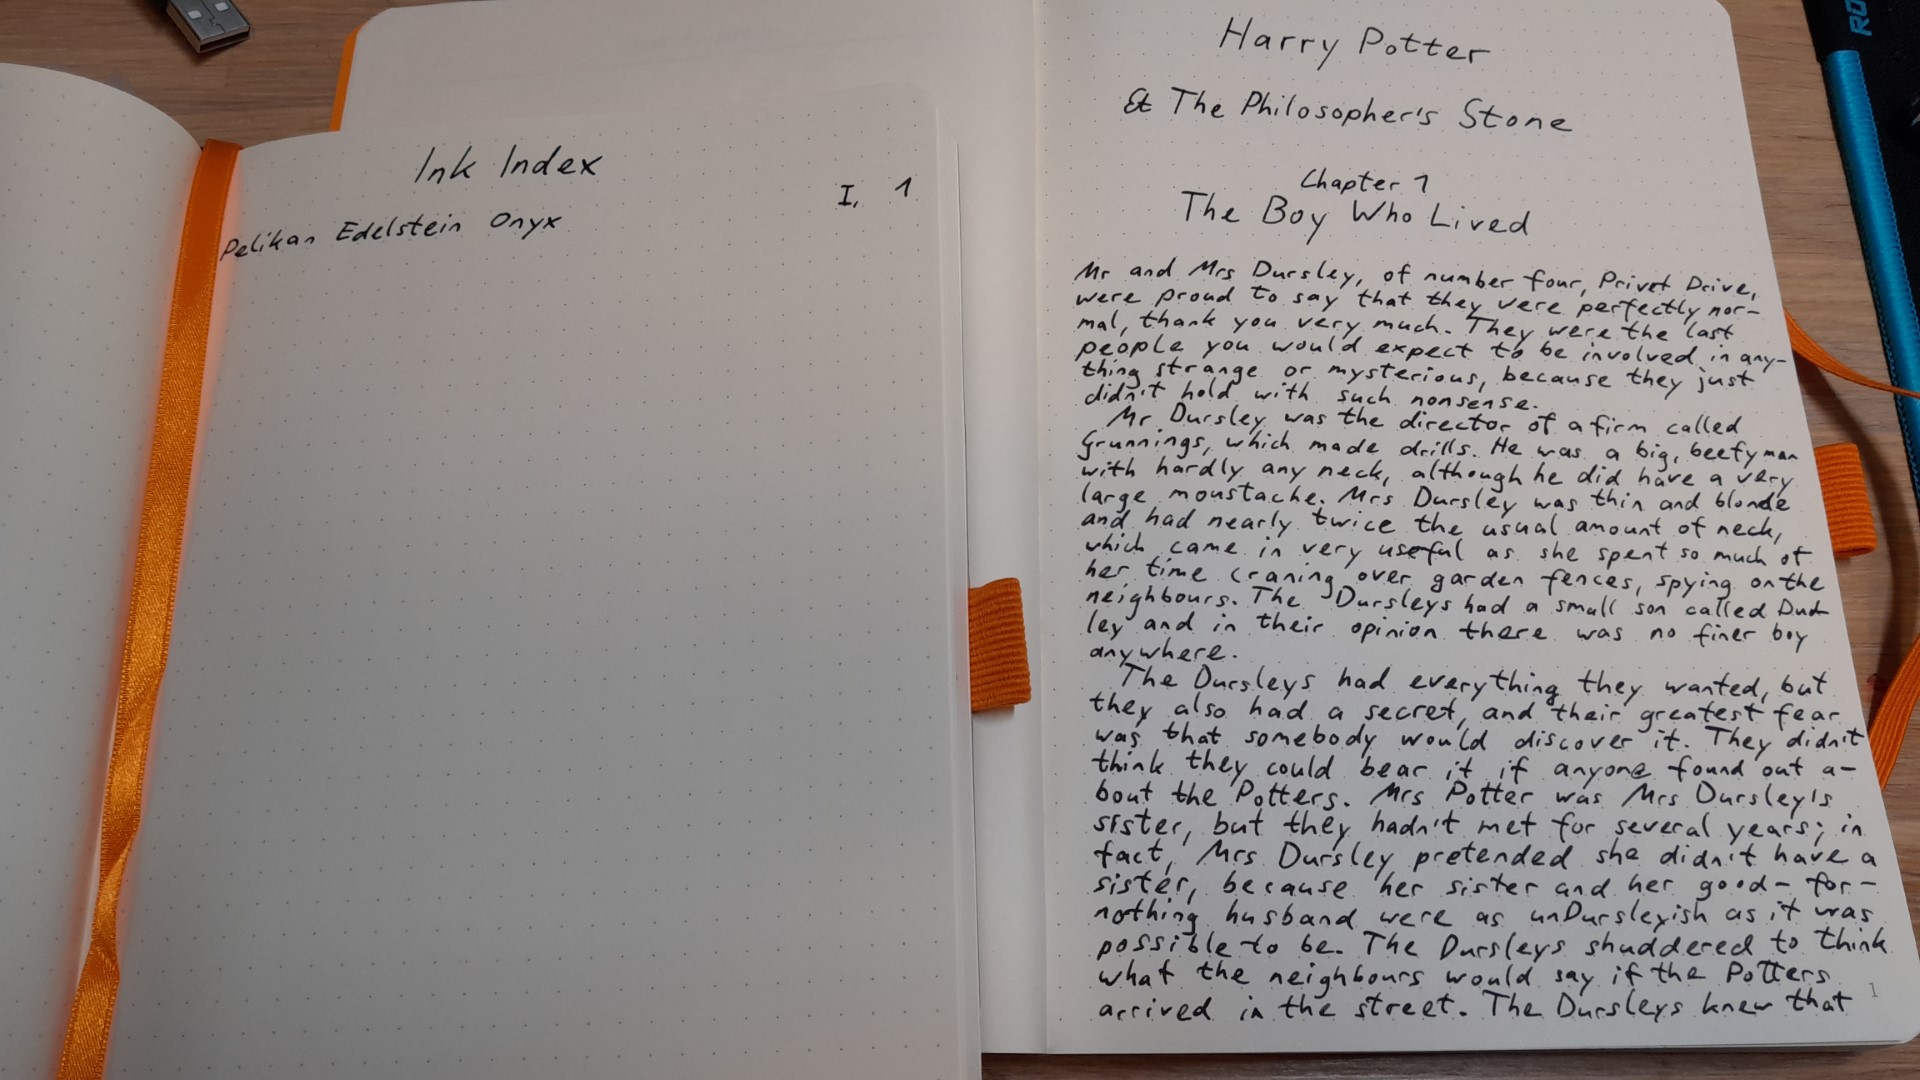 Ink Index
I, 1
Pelikan Edelstein Onyx
Harry Potter
& The Philosopher's Stone
Chapter 1
The Boy Who Lived
Mr and Mrs Dursley, of number four, Privet Drive,
were proud to say that they were perfectly nor-
mal, thank you very much. They were the last
people you would expect to be involved in any-
thing strange or mysterious, because they just
didn't hold with such nonsense.
Mr Dursley was the director of a firm called
Grunnings, which made drills. He was a big, beefy man
with hardly any neck, although he did have a very
large moustache. Mrs Dursley was thin and blonde
and had nearly twice the usual amount of neck,
which came in very useful as she spent so much of
her time craning over garden fences, spying on the
neighbours. The Dursleys had a small son called Dud-
ley and in their opinion there was no finer boy
anywhere.
The Dursleys had everything they wanted, but
they also had a secret, and their greatest fear
was that somebody would discover it. They didn't
think they could bear it if anyone found out a-
bout the Potters. Mrs Potter was Mrs Dursley's
sister, but they hadn't met for several years; in
fact, Mrs Dursley pretended she didn't have a
sister, because her sister and her good-for-
nothing husband were as unDursleyish as it was
possible to be. The Dursleys shuddered to think
what the neighbours would say if the Potters
arrived in the street. The Dursleys knew that
1